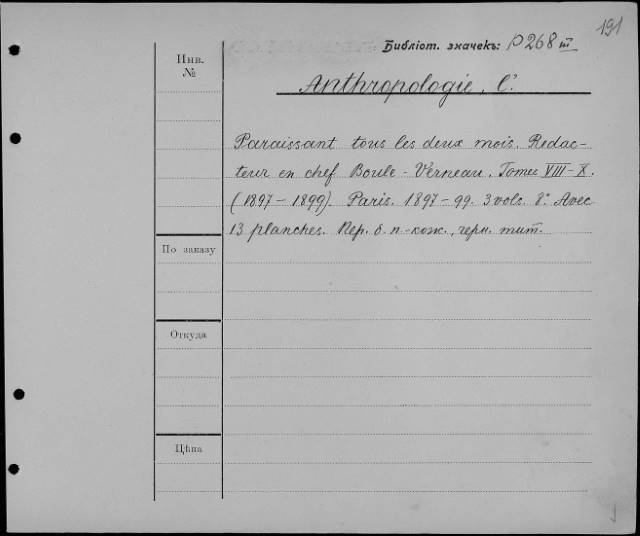 191
Библіот. значекъ: P268 III
Инв.
№
Anthropologie, L'.
Paraissant tous les deux mois. Redac-
teur en chef Boule-Verneau. Tomes VIII-X.
(1897-1899). Paris. 1897-99. 3 vols. 8° Avec
13 planches. Пер. б. п-кож., черн. тит.
По заказу
Откуда
Цѣна